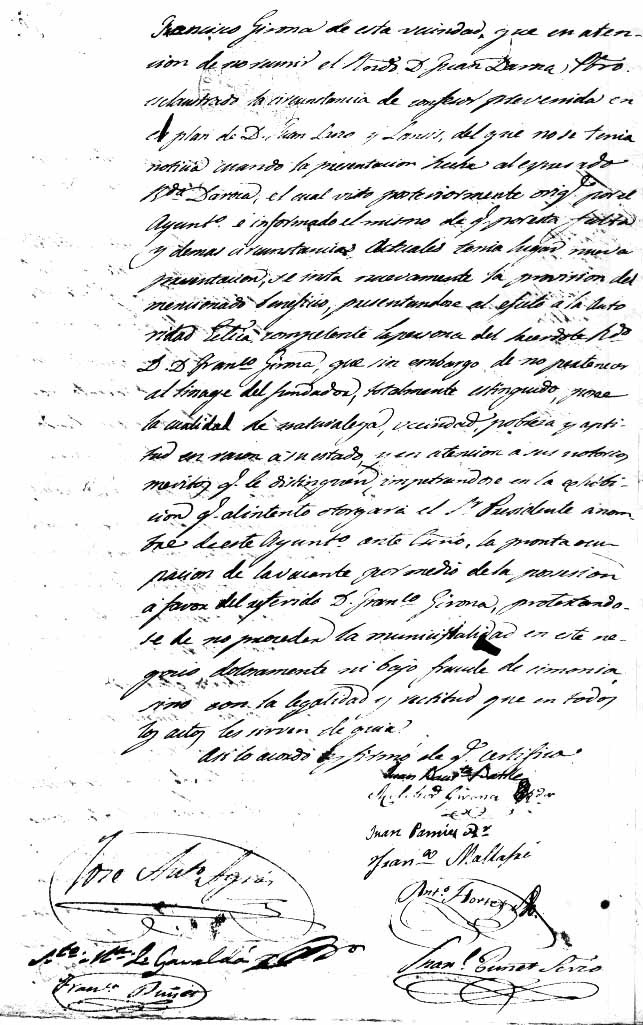 Francisco Girona de esta vecindad, que en aten-
cion de no reunir el Rndo D. Juan Darna, Pbro.
esclaustrado la circunstancia de confesor prevenida en
el plan de D. Juan y del que no se tenia
noticia cuando la presentacion hecha al espresado
Rdo Darna, el cual visto posteriormente orig.l por el
Ayunto. e informado el mismo de q.e por esta falta
y demas circunstancias actuales tenia lugar nueva
presentacion, se insta nuevamente la provision del
mencionado beneficio, presentandose al efecto a la Auto
ridad Ecl.ca competente la persona del sacerdote Rdo
D. D. Franco Girona, que sin embargo de no pertenecer
al linage del fundador, totalmente estinguido, posee
la cualidad de naturaleza, vecindad, pobreza y apti-
tud en razon a su estado, y en atencion a sus notorios
meritos q.e le distinguen, impetrandose en la
cion q.e al intento otorgará el Sr Presidente á nom
bre de este Ayunto. ante la pronta ocu
pacion de la vacante por medio de la posesion
a favor del referido D. Franco Girona, protestando-
se de no proceder la municipalidad en este ne-
gocio dolosamente ni bajo fraude de simonia
sino con la legalidad y rectitud que en todos
los actos les sirven de guia.
Asi lo acordó y firmó de q.e certifico
Juan Bauta Batlle
Girona
Juan Pamies
Franco Mallafré
José Anto.
Anto. Torres
Gavaldá
Franco
Franco Srio